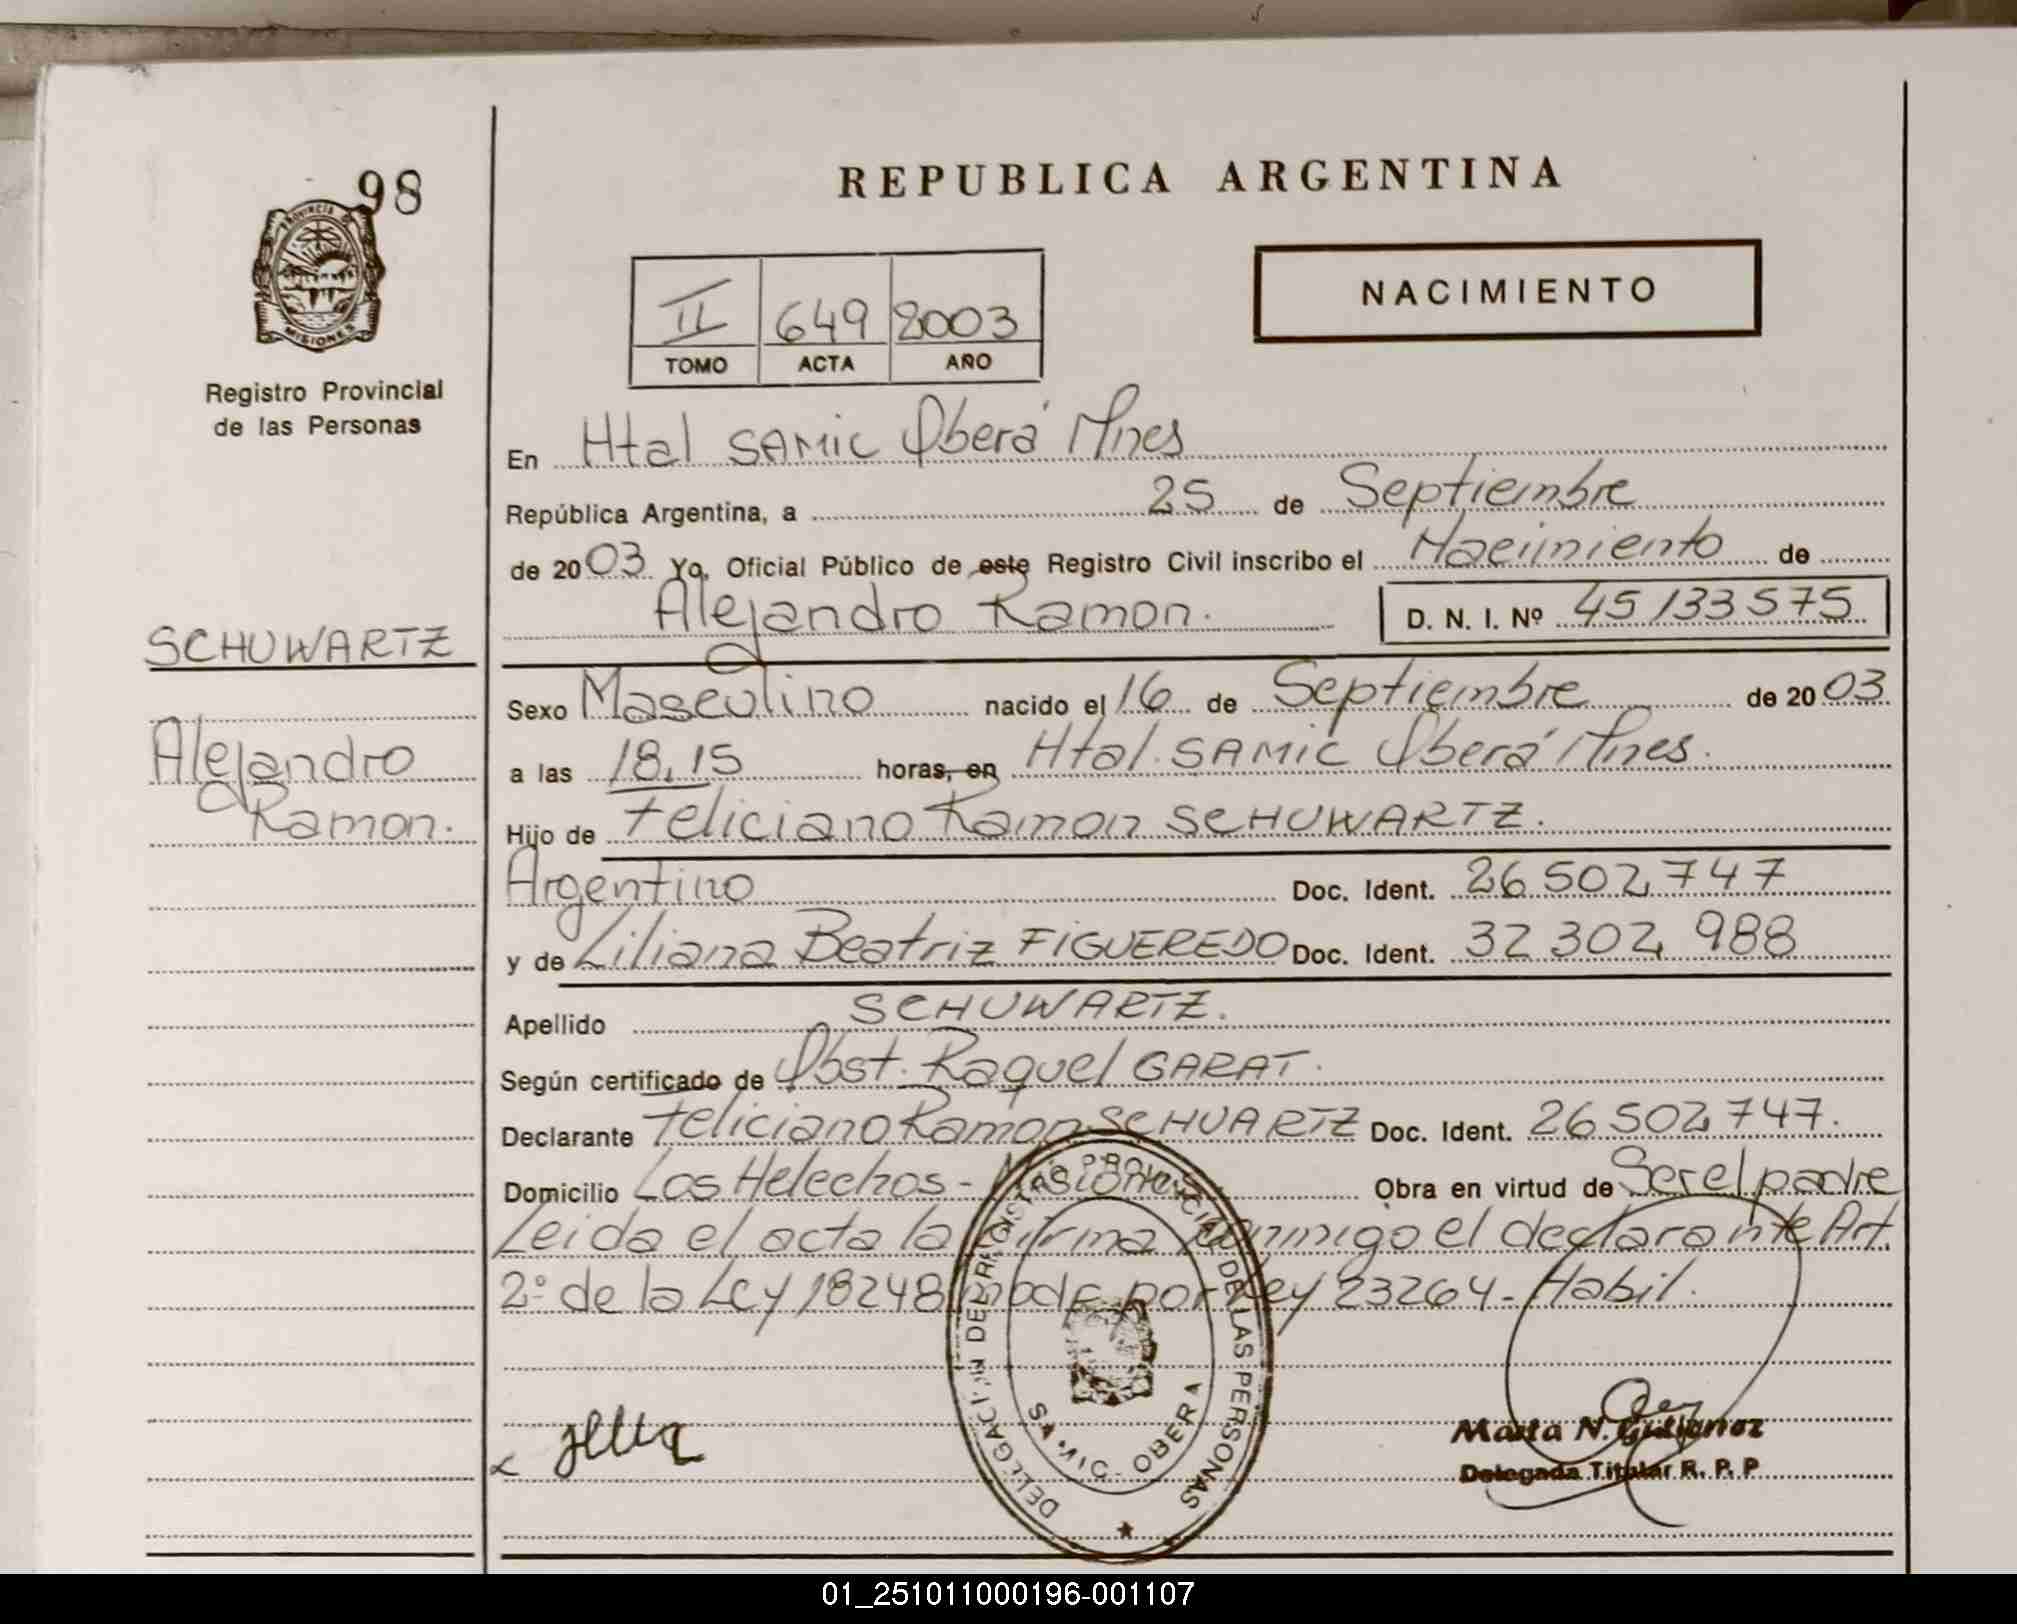 98
REPUBLICA ARGENTINA
PROVINCIA DE
MISIONES
Registro Provincial
de las Personas
NACIMIENTO
II 649 2003
TOMO ACTA AÑO
En Htal SAMIC Oberá Mnes
República Argentina, a 25 de Septiembre
de 2003 Yo, Oficial Público de este Registro Civil inscribo el Nacimiento de
Alejandro Ramon. D. N. I. Nº 45133575
SCHUWARTZ
Alejandro
Ramon.
Sexo Masculino nacido el 16 de Septiembre de 2003
a las 18,15 horas, en Htal. SAMIC Oberá Mnes.
Hijo de Feliciano Ramon SCHUWARTZ.
Argentino Doc. Ident. 26 502 747
y de Liliana Beatriz FIGUEREDO Doc. Ident. 32 302 988
Apellido SCHUWARTZ.
Según certificado de Obst. Raquel GARAT.
Declarante Feliciano Ramon SCHUARTZ Doc. Ident. 26 502 747.
Domicilio Los Helechos - Misiones Obra en virtud de Ser el padre
Leida el acta la firma conmigo el declarante Art.
2º de la Ley 18248 modf por Ley 23264 - Habil.
DE LAS PERSONAS
OBERA
Marta N. Gutierrez
Delegada Titular R. P. P
01_251011000196-001107